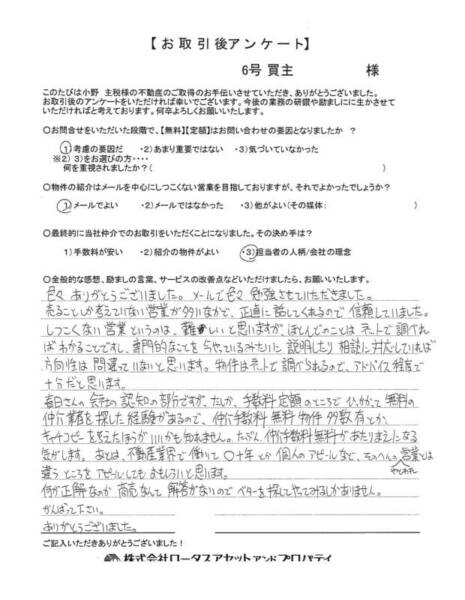 【お取引後アンケート】
6号買主 様
このたびは小野 主税様の不動産のご取得のお手伝いさせていただき、ありがとうございました。
お取引後のアンケートをいただければ幸いでございます。今後の業務の研鑽や励ましにに生かさせて
いただければと考えております。何卒よろしくお願いいたします。
○お問合せをいただいた段階で、【無料】【定額】はお問い合わせの要因となりましたか ?
1)考慮の要因だ ・2)あまり重要ではない ・3)気づいていなかった
※2) 3)をお選びの方・・・・
何を重視されましたか?( )
○物件の紹介はメールを中心にしつこくない営業を目指しておりますが、それでよかったでしょうか?
1)メールでよい ・2)メールではなかった ・3)他がよい(その媒体: )
○最終的に当社仲介でのお取引をいただくことになりました。その決め手は?
1)手数料が安い ・2)紹介の物件がよい ・3)担当者の人柄/会社の理念
○全般的な感想、励ましの言葉、サービスの改善点などいただけましたら、お願いいたします。
色々ありがとうございました。メールで色々勉強させていただきました。
売ることしか考えていない営業が多いなかで、正直に話してくれるので信頼していました。
しつこくない営業というのは、難しいと思いますが、ほとんどのことはネットで調べれ
ばわかることですし、専門的なことをやっているみたいに説明したり相談に対応していれば
方向性は間違っていないと思います。物件はネットで調べられるので、アドバイス程度で
十分だと思います。
春日さんの会社の認知の部分ですが、たしか、手数料定額のところで引っかかって無料の
仲介業者を探した経験があるので、仲介手数料無料物件多数有とか、
キャッチコピーを変えたほうがいいかも知れません。たぶん仲介手数料無料があたりまえになる
気がします。あとは、不動産業界で働いて〇十年とか個人のアピールなど、その他の営業とは
違うところをアピールしてもおもしろいと思います。
何が正解なのか商売なんて解答がないのでベターを探してやってみるしかありません。
がんばって下さい。
ありがとうございました。
ご記入いただきありがとうございました!
株式会社ロータスアセットアンドプロパティ